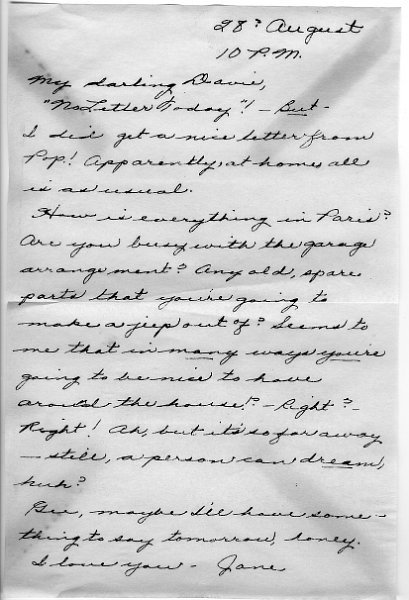 28? August
10 P.M.
My darling Davie,
"No Letter Today"! - But -
I did get a nice letter from
Pop! Apparently, at home, all
is as usual.
How is everything in Paris?
Are you busy with the garage
arrangement? Any old, spare
parts that you're going to
make a jeep out of? Seems to
me that in many ways you're
going to be nice to have
around the house!? - Right? -
Right! Ah, but it's so far away
- still, a person can dream,
huh?
Gee, maybe I'll have some-
thing to say tomorrow, honey.
I love you - Jane